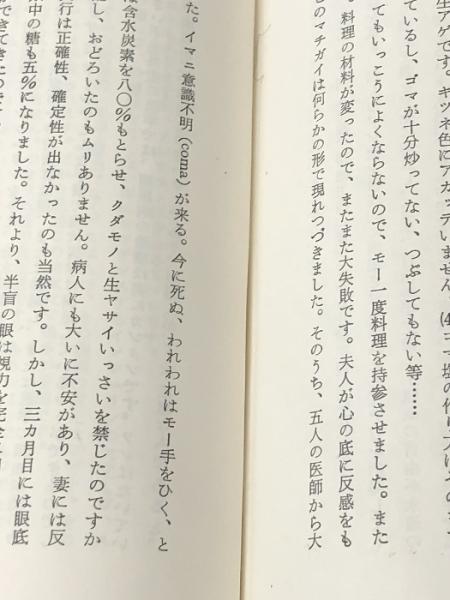 生アゲです。キツネ色にアガッテいません
ているし、ゴマが十分炒ってない、つぶしてもない等……
てもいっこうによくならないので、モー一度料理を持参させました。また
。料理の材料が変ったので、またまた大失敗です。夫人が心の底に反感をも
ものマチガイは何らかの形で現れつづきました。そのうち、五人の医師から大
た。イマニ意識不明(coma)が来る。今に死ぬ、われわれはモー手をひく、と
は含水炭素を八〇%もとらせ、クダモノと生ヤサイいっさいを禁じたのですか
し、おどろいたのもムリありません。病人にも大いに不安があり、妻には反
行は正確性、確定性が出なかったのも当然です。しかし、三カ月目には眼底
中の糖も五%になりました。それより、半盲の眼は視力を完全に